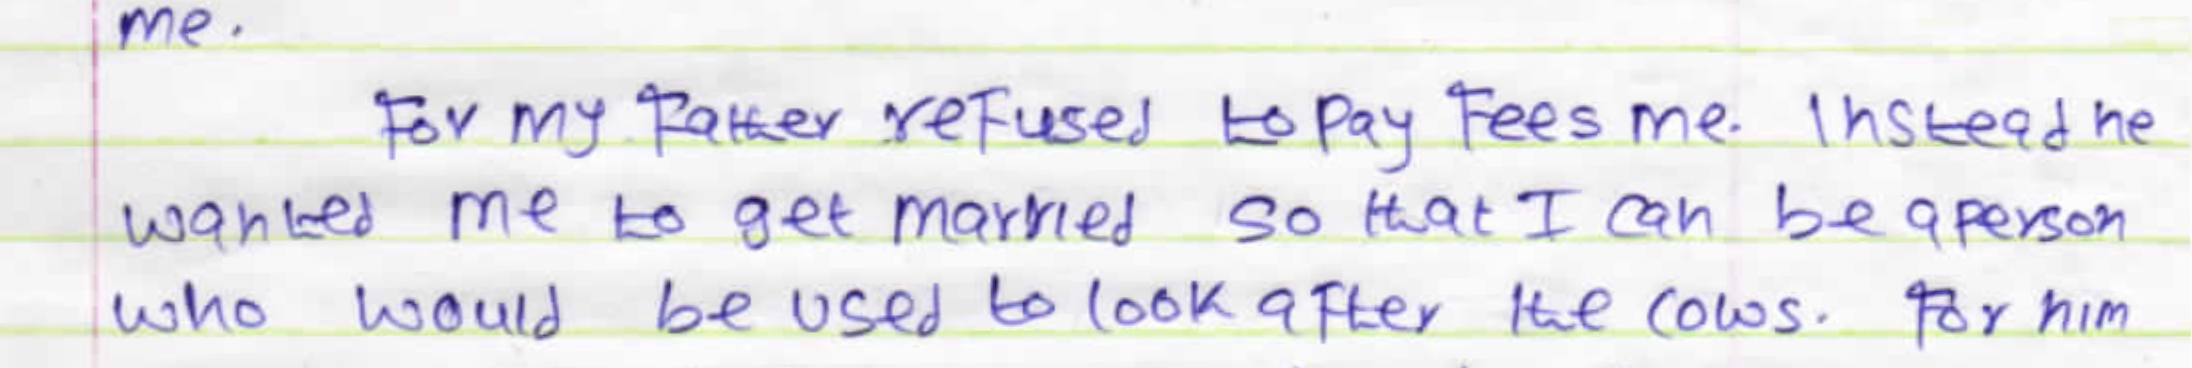 me.
For my Father refused to pay Fees me. Instead he
wanted me to get married so that I can be a person
who would be used to look after the cows. For him